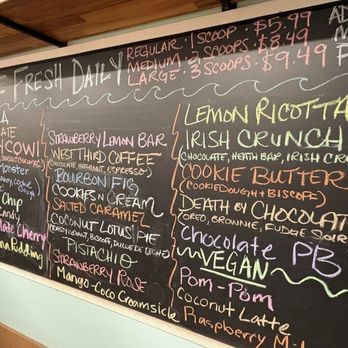 FRESH DAILY
REGULAR · 1 SCOOP · $5.99
MEDIUM · 2 SCOOPS · $8.49
LARGE · 3 SCOOPS · $9.49
COW!
Monster
Chip
Candy
Cherry
Pudding
STRAWBERRY LEMON BAR
WEST THIRD COFFEE
(CHOCOLATE, HAZELNUT, ESPRESSO)
BOURBON FIG
COOKIES N CREAM
SALTED CARAMEL
COCONUT LOTUS PIE
PISTACHIO
STRAWBERRY ROSE
Mango-Coco Creamsicle
LEMON RICOTTA
IRISH CRUNCH
CHOCOLATE, HEATH BAR, IRISH
COOKIE BUTTER
(COOKIE DOUGH + BISCOFF)
DEATH BY CHOCOLAT
OREO, BROWNIE, FUDGE
Chocolate PB
VEGAN
Pom-Pom
Coconut Latte
Raspberry